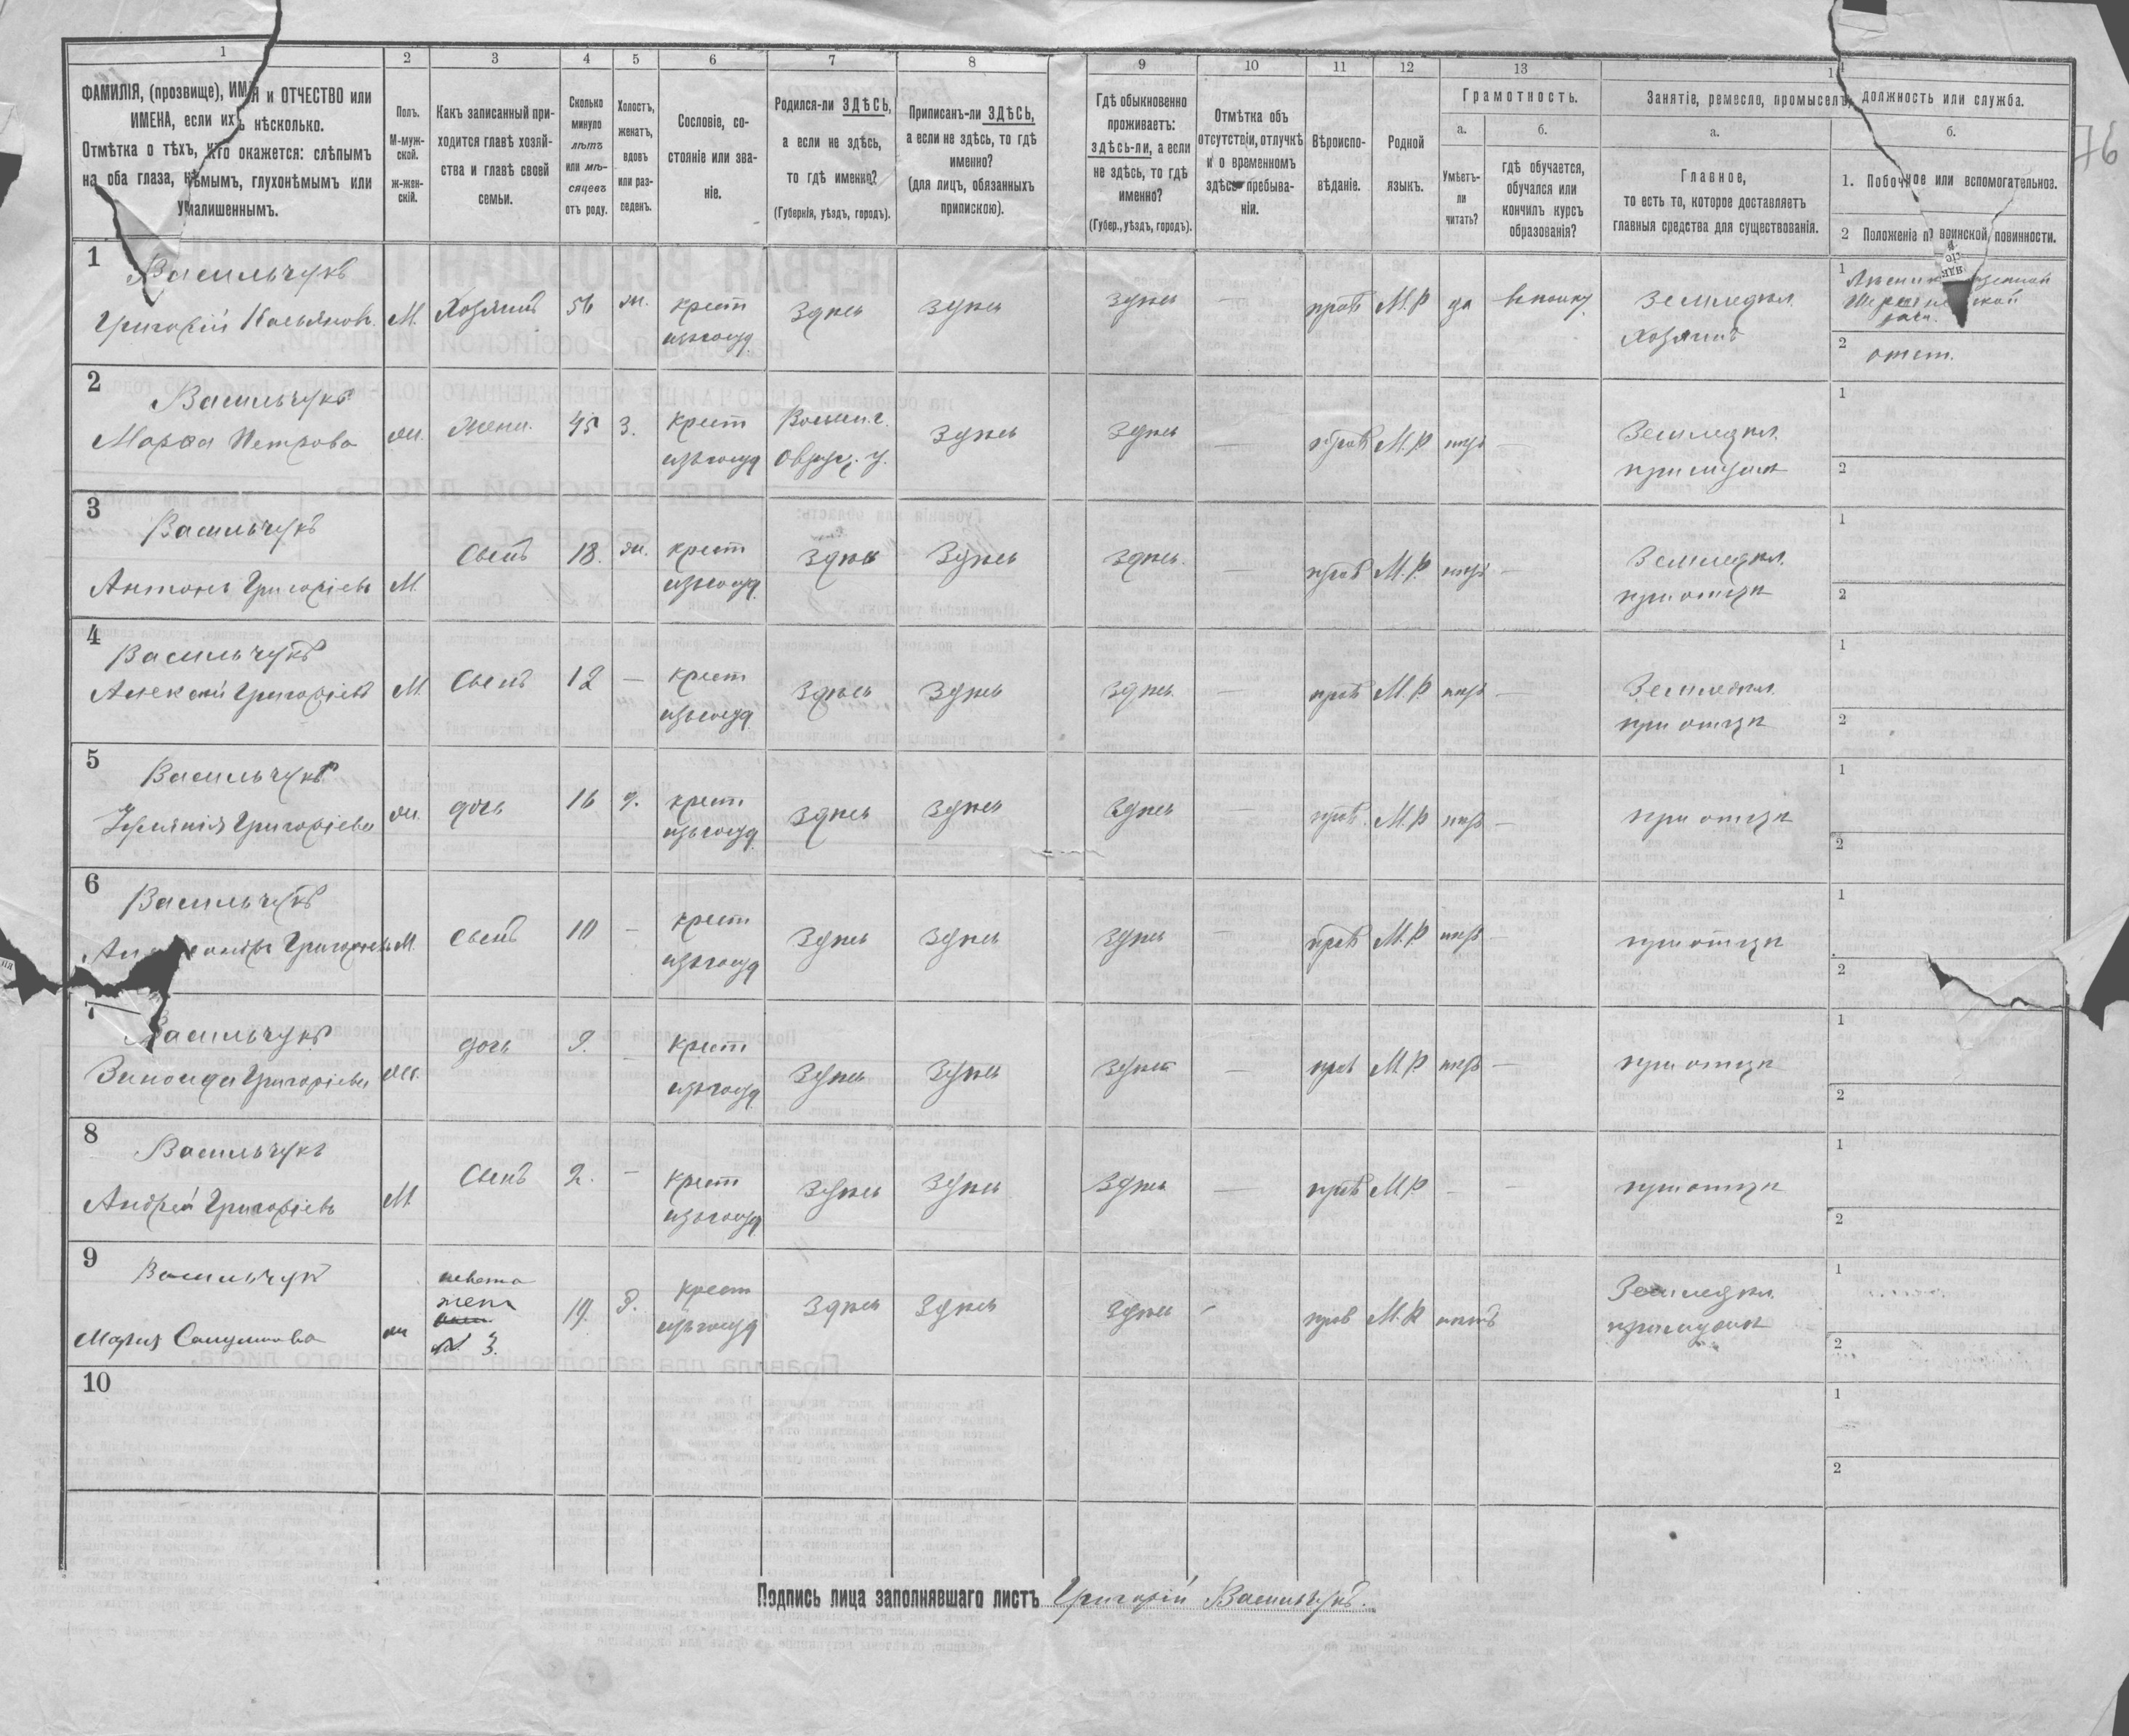 1
2
3
4
5
6
7
8
9
10
11
12
13
76
ФАМИЛІЯ, (прозвище), ИМЯ и ОТЧЕСТВО или
ИМЕНА, если ихъ нѣсколько.
Отмѣтка о тѣхъ, кто окажется: слѣпымъ
на оба глаза, нѣмымъ, глухонѣмымъ или
умалишеннымъ.
Полъ.
М-муж-
ской.
ж-жен-
скій.
Какъ записанный при-
ходится главѣ хозяй-
ства и главѣ своей
семьи.
Сколько
минуло
лѣтъ
или мѣ-
сяцевъ
отъ роду.
Холостъ,
женатъ,
вдовъ
или раз-
веденъ.
Сословіе, со-
стояніе или зва-
ніе.
Родился-ли ЗДѢСЬ,
а если не здѣсь,
то гдѣ именно?
(Губернія, уѣздъ, городъ).
Приписанъ-ли ЗДѢСЬ,
а если не здѣсь, то гдѣ
именно?
(для лицъ, обязанныхъ
припискою).
Гдѣ обыкновенно
проживаетъ:
здѣсь-ли, а если
не здѣсь, то гдѣ
именно?
(Губер., уѣздъ, городъ).
Отмѣтка объ
отсутствіи, отлучкѣ
и о временномъ
здѣсь пребыва-
ніи.
Вѣроиспо-
вѣданіе.
Родной
языкъ.
Грамотность.
а.
Умѣетъ-
ли
читать?
б.
гдѣ обучается,
обучался или
кончилъ курсъ
образованія?
Занятіе, ремесло, промыселъ, должность или служба.
а.
Главное,
то есть то, которое доставляетъ
главныя средства для существованія.
б.
1. Побочное или вспомогательноє.
2 Положеніе по воинской повинности.
1
Васильчукъ
Григорій Касьянов.
М.
Хозяинъ
56
ж.
крест
изъ госуд
Здѣсь
Здѣсь
здѣсь
—
прав
М.Р
да
Земледѣл.
Хозяинъ
1
2
отст.
2
Васильчукъ
Марфа Петрова
ж.
жена.
45
З.
крест
изъ госуд
Волын. г.
Овруч. у.
Здѣсь
Здѣсь
—
прав
М.Р
нѣтъ
—
Земледѣл.
при мужѣ
1
2
3
Васильчукъ
Антонъ Григоріевъ
М.
Сынъ
18.
ж.
крест
изъ госуд
Здѣсь
Здѣсь
Здѣсь.
—
прав
М.Р.
нѣтъ
—
Земледѣл.
при отцѣ
1
2
4
Васильчукъ
Алексѣй Григоріевъ
М.
Сынъ
12
—
крест
изъ госуд
Здѣсь
Здѣсь
Здѣсь
—
прав
М.Р.
нѣтъ
—
Земледѣл.
при отцѣ
1
2
5
Васильчукъ
Григоріева
ж.
дочь
16
д.
крест
изъ госуд.
Здѣсь
Здѣсь
Здѣсь
—
прав
М.Р
нѣтъ
—
при отцѣ
1
2
6
Васильчукъ
Григоріевъ
М.
Сынъ
10
—
крест
изъ госуд
Здѣсь
Здѣсь
Здѣсь
—
прав
М.Р
нѣтъ
—
при отцѣ
1
2
7
Васильчукъ
Зиноида Григоріева
ж.
дочь
9.
—
крест
изъ госуд.
Здѣсь
Здѣсь
Здѣсь
—
прав
М.Р
нѣтъ
—
при отцѣ
1
2
8
Васильчукъ
Андрей Григоріевъ
М.
Сынъ
2.
—
крест
изъ госуд
Здѣсь
Здѣсь
Здѣсь
—
прав
М.Р
—
—
при отцѣ
1
2
9
Васильчук
Марія
ж
невѣста
жена
№ 3.
19.
З.
крест
изъ госуд
Здѣсь
Здѣсь
Здѣсь
прав
М.Р
нѣтъ
Земледѣл
при мужѣ
1
2
10
1
2
Подпись лица заполнявшаго листъ Григорій Васильчукъ.